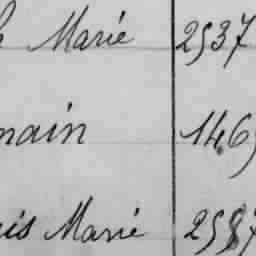 Marie 2537
main 1469
is Marie 2587